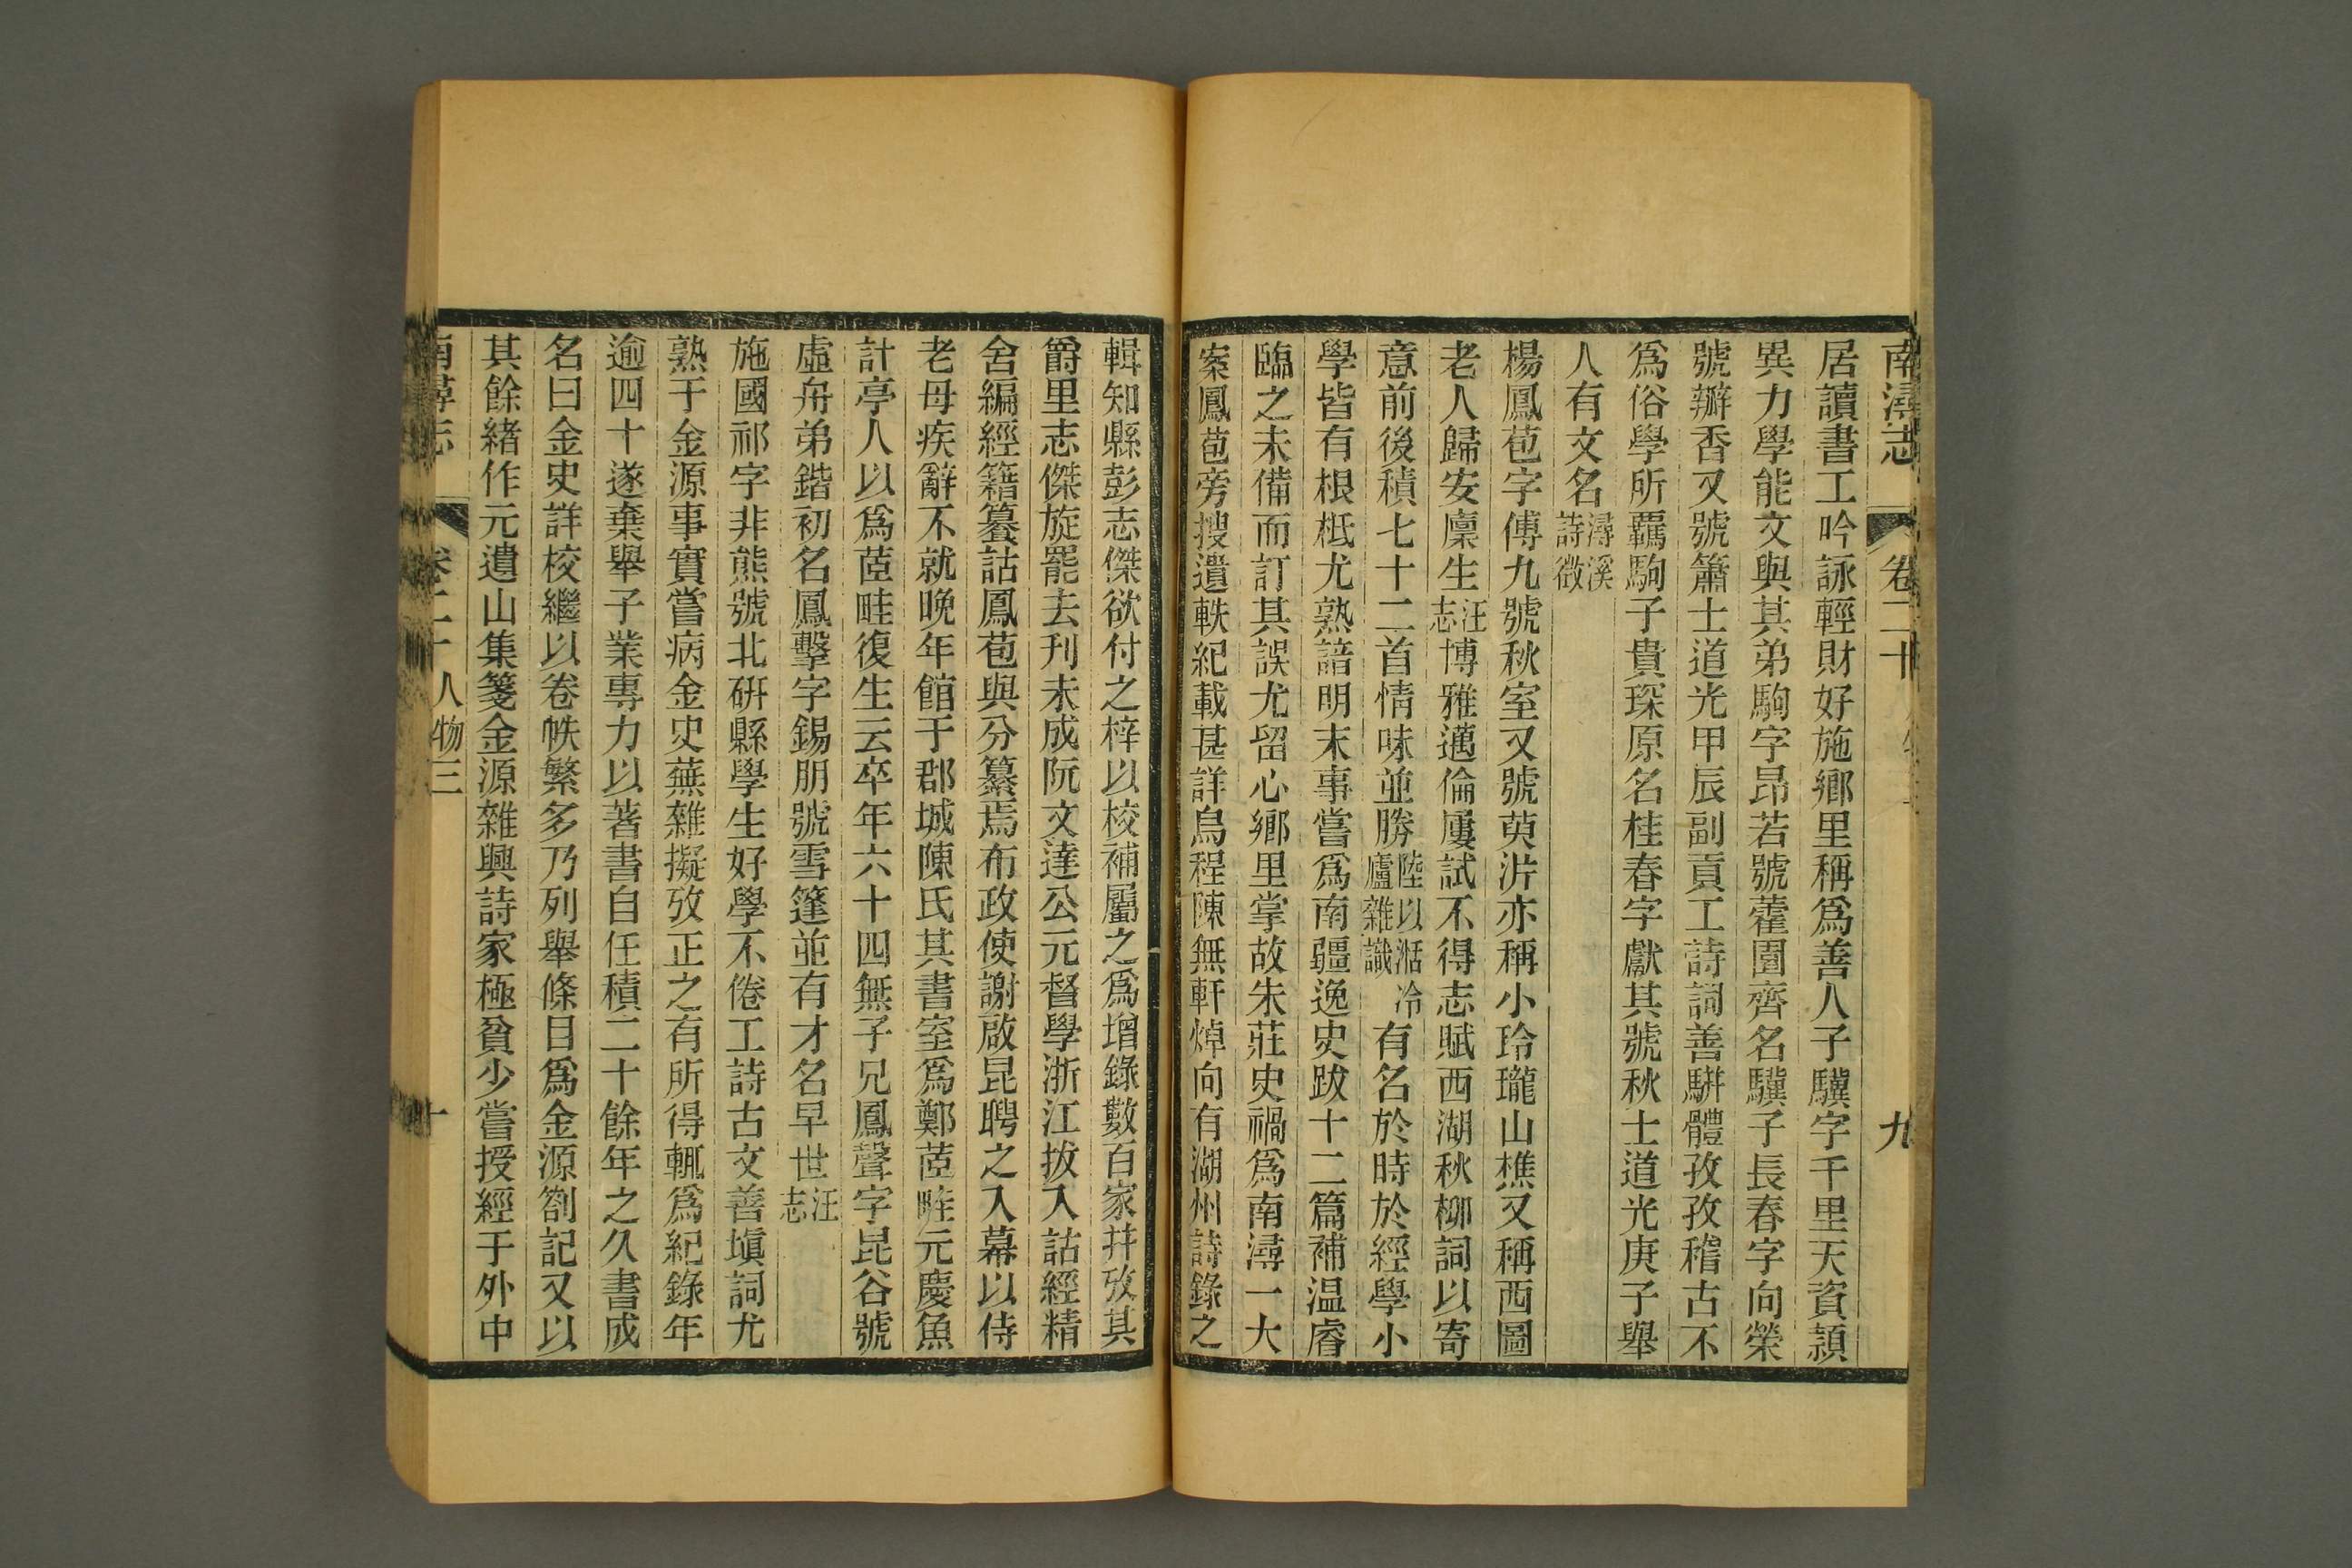 南潯志 卷二十 九
居讀書工吟詠輕財好施鄉里稱爲善人子驥字千里天資潁
異力學能文與其弟駒字昂若號藿園齊名驥子長春字向榮
號辦香又號簫士道光甲辰副貢工詩詞善駢體孜孜稽古不
爲俗學所羈駒子貴琛原名桂春字獻其號秋士道光庚子舉
人有文名潯溪詩徵
楊鳳苞字傅九號秋室又號萸沜亦稱小玲瓏山樵又稱西圖
老人歸安廩生汪志博雅邁倫屢試不得志賦西湖秋柳詞以寄
意前後積七十二首情味並勝陸以湉冷廬雜識有名於時於經學小
學皆有根柢尤熟諳明末事嘗爲南疆逸史跋十二篇補温睿
臨之未備而訂其誤尤留心鄉里掌故朱莊史禍爲南潯一大
案鳳苞旁搜遺軼紀載甚詳烏程陳無軒焯向有湖州詩錄之
輯知縣彭志傑欲付之梓以校補屬之爲增錄數百家幷攷其
爵里志傑旋罷去刊未成阮文達公元督學浙江拔入詁經精
舍編經籍籑詁鳳苞與分纂焉布政使謝啟昆聘之入幕以侍
老母疾辭不就晚年館于郡城陳氏其書室爲鄭茝畦元慶魚
計亭人以爲茝畦復生云卒年六十四無子兄鳳聲字昆谷號
虛舟弟鍇初名鳳擊字錫朋號雪篷並有才名早世汪志
施國祁字非熊號北硏縣學生好學不倦工詩古文善塡詞尤
熟于金源事實嘗病金史蕪雜擬攷正之有所得輒爲紀錄年
逾四十遂棄舉子業專力以著書自任積二十餘年之久書成
名曰金史詳校繼以卷帙繁多乃列舉條目爲金源劄記又以
其餘緒作元遺山集箋金源雜興詩家極貧少嘗授經于外中
南潯志 卷二十 人物三 十